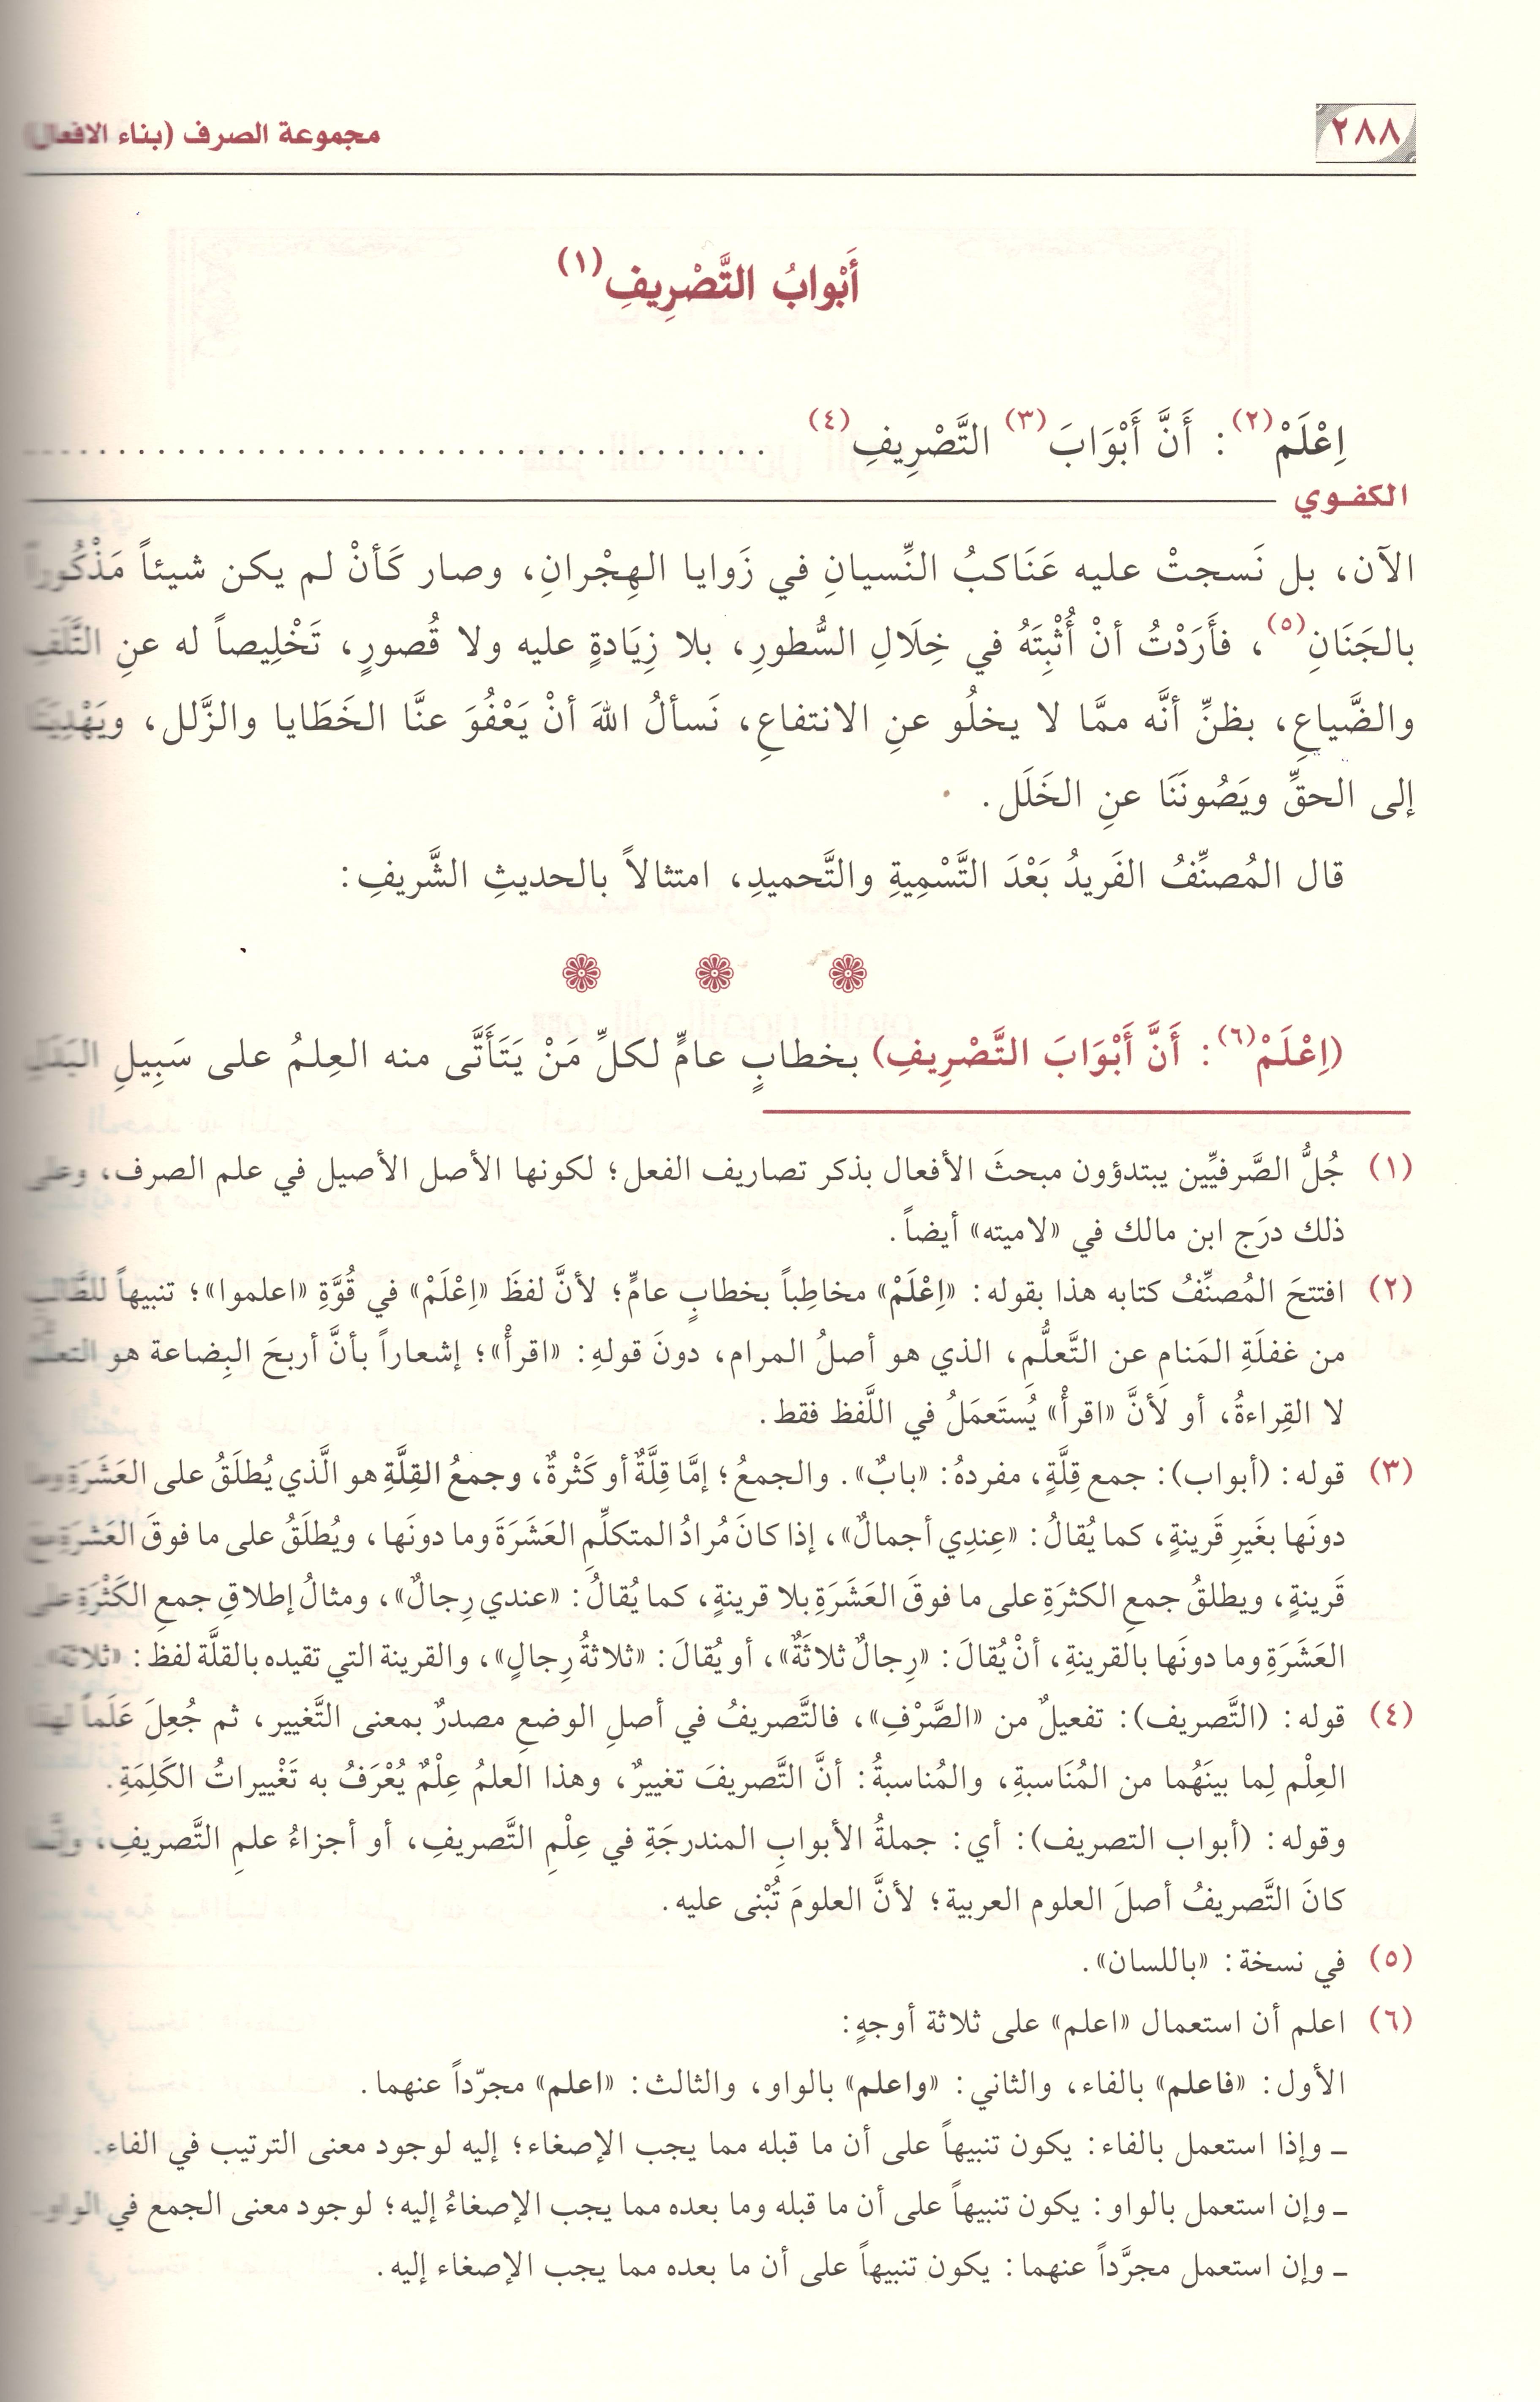 ٢٨٨
مجموعة الصرف (بناء الافعال)
أَبْوابُ التَّصْرِيفِ(١)
اِعْلَمْ(٢): أَنَّ أَبْوَابَ(٣) التَّصْرِيفِ(٤) ......................................
الكفـوي
الآن، بل نَسجتْ عليه عَنَاكبُ النِّسيانِ في زَوايا الهِجْرانِ، وصار كَأنْ لم يكن شيئاً مَذْكُوراً
بالجَنَانِ(٥)، فأَرَدْتُ أنْ أُثْبِتَهُ في خِلَالِ السُّطورِ، بلا زِيَادةٍ عليه ولا قُصورٍ، تَخْلِيصاً له عنِ التَّلَفِ
والضَّياعِ، بظنِّ أنَّه ممَّا لا يخلُو عنِ الانتفاعِ، نَسألُ اللهَ أنْ يَعْفُوَ عنَّا الخَطَايا والزَّلل، ويَهْدِيَنَا
إلى الحقِّ ويَصُونَنَا عنِ الخَلَل.
قال المُصنِّفُ الفَريدُ بَعْدَ التَّسْمِيةِ والتَّحميدِ، امتثالاً بالحديثِ الشَّريفِ:
(اِعْلَمْ(٦): أَنَّ أَبْوَابَ التَّصْرِيفِ) بخطابٍ عامٍّ لكلِّ مَنْ يَتَأَتَّى منه العِلمُ على سَبِيلِ
(١) جُلُّ الصَّرفيِّين يبتدؤون مبحثَ الأفعال بذكر تصاريف الفعل؛ لكونها الأصل الأصيل في علم الصرف، وعلى
ذلك درَج ابن مالك في «لاميته» أيضاً.
(٢) افتتحَ المُصنِّفُ كتابه هذا بقوله: «اِعْلَمْ» مخاطِباً بخطابٍ عامٍّ؛ لأنَّ لفظَ «اِعْلَمْ» في قُوَّةِ «اعلموا»؛ تنبيهاً للطَّالب
من غفلَةِ المَنام عن التَّعلُّمِ، الذي هو أصلُ المرام، دونَ قولهِ: «اقرأْ»؛ إشعاراً بأنَّ أربحَ البِضاعة هو التعلُّم
لا القِراءةُ، أو لأنَّ «اقرأْ» يُستَعمَلُ في اللَّفظ فقط.
(٣) قوله: (أبواب): جمع قِلَّةٍ، مفردهُ: «بابٌ». والجمعُ؛ إمَّا قِلَّةٌ أو كَثْرةٌ، وجمعُ القِلَّةِ هو الَّذي يُطلَقُ على العَشَرَةِ وما
دونَها بغَيرِ قَرينةٍ، كما يُقالُ: «عِندِي أجمالٌ»، إذا كانَ مُرادُ المتكلِّمِ العَشَرَةَ وما دونَها، ويُطلَقُ على ما فوقَ العَشرَةِ مع
قَرينةٍ، ويطلقُ جمع الكثرَةِ على ما فوقَ العَشَرَةِ بلا قرينةٍ، كما يُقالُ: «عندي رِجالٌ»، ومثالُ إطلاقِ جمعِ الكَثْرَةِ على
العَشَرَةِ وما دونَها بالقرينةِ، أنْ يُقالَ: «رِجالٌ ثلاثَةٌ»، أو يُقالَ: «ثلاثةُ رِجالٍ»، والقرينة التي تقيده بالقلَّة لفظ: «ثلاثة».
(٤) قوله: (التَّصريف): تفعيلٌ من «الصَّرْفِ»، فالتَّصريفُ في أصلِ الوضعِ مصدرٌ بمعنى التَّغيير، ثم جُعِلَ عَلَماً لهذا
العِلْم لِما بينَهُما من المُنَاسبةِ، والمُناسبةُ: أنَّ التَّصريفَ تغييرٌ، وهذا العلمُ عِلْمٌ يُعْرَفُ به تَغْييراتُ الكَلِمَةِ.
وقوله: (أبواب التصريف): أي: جملةُ الأبوابِ المندرجَةِ في عِلْمِ التَّصريفِ، أو أجزاءُ علمِ التَّصريفِ،
كانَ التَّصريفُ أصلَ العلوم العربية؛ لأنَّ العلومَ تُبْنى عليه.
(٥) في نسخة: «باللسان».
(٦) اعلم أن استعمال «اعلم» على ثلاثة أوجهٍ:
الأول: «فاعلم» بالفاء، والثاني: «واعلم» بالواو، والثالث: «اعلم» مجرّداً عنهما.
ـ وإذا استعمل بالفاء: يكون تنبيهاً على أن ما قبله مما يجب الإصغاء؛ إليه لوجود معنى الترتيب في الفاء.
ـ وإن استعمل بالواو: يكون تنبيهاً على أن ما قبله وما بعده مما يجب الإصغاءُ إليه؛ لوجود معنى الجمع في الواو.
ـ وإن استعمل مجرَّداً عنهما: يكون تنبيهاً على أن ما بعده مما يجب الإصغاء إليه.